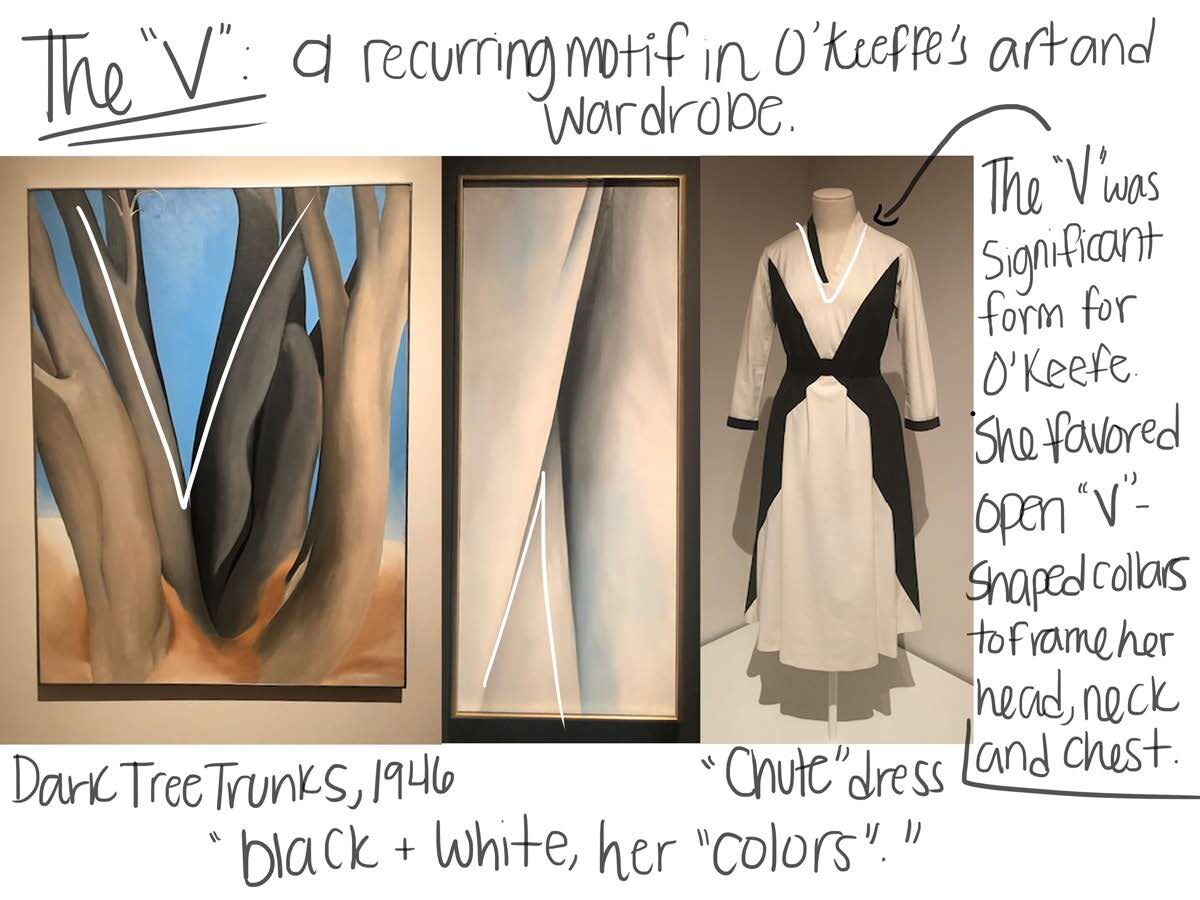 The "V": a recurring motif in O'Keeffe's art and
wardrobe.
The "V" was
significant
form for
O'Keefe.
She favored
open "V"-
shaped collars
to frame her
head, neck
and chest.
Dark Tree Trunks, 1946
"Chute" dress
"black + white, her "colors"."